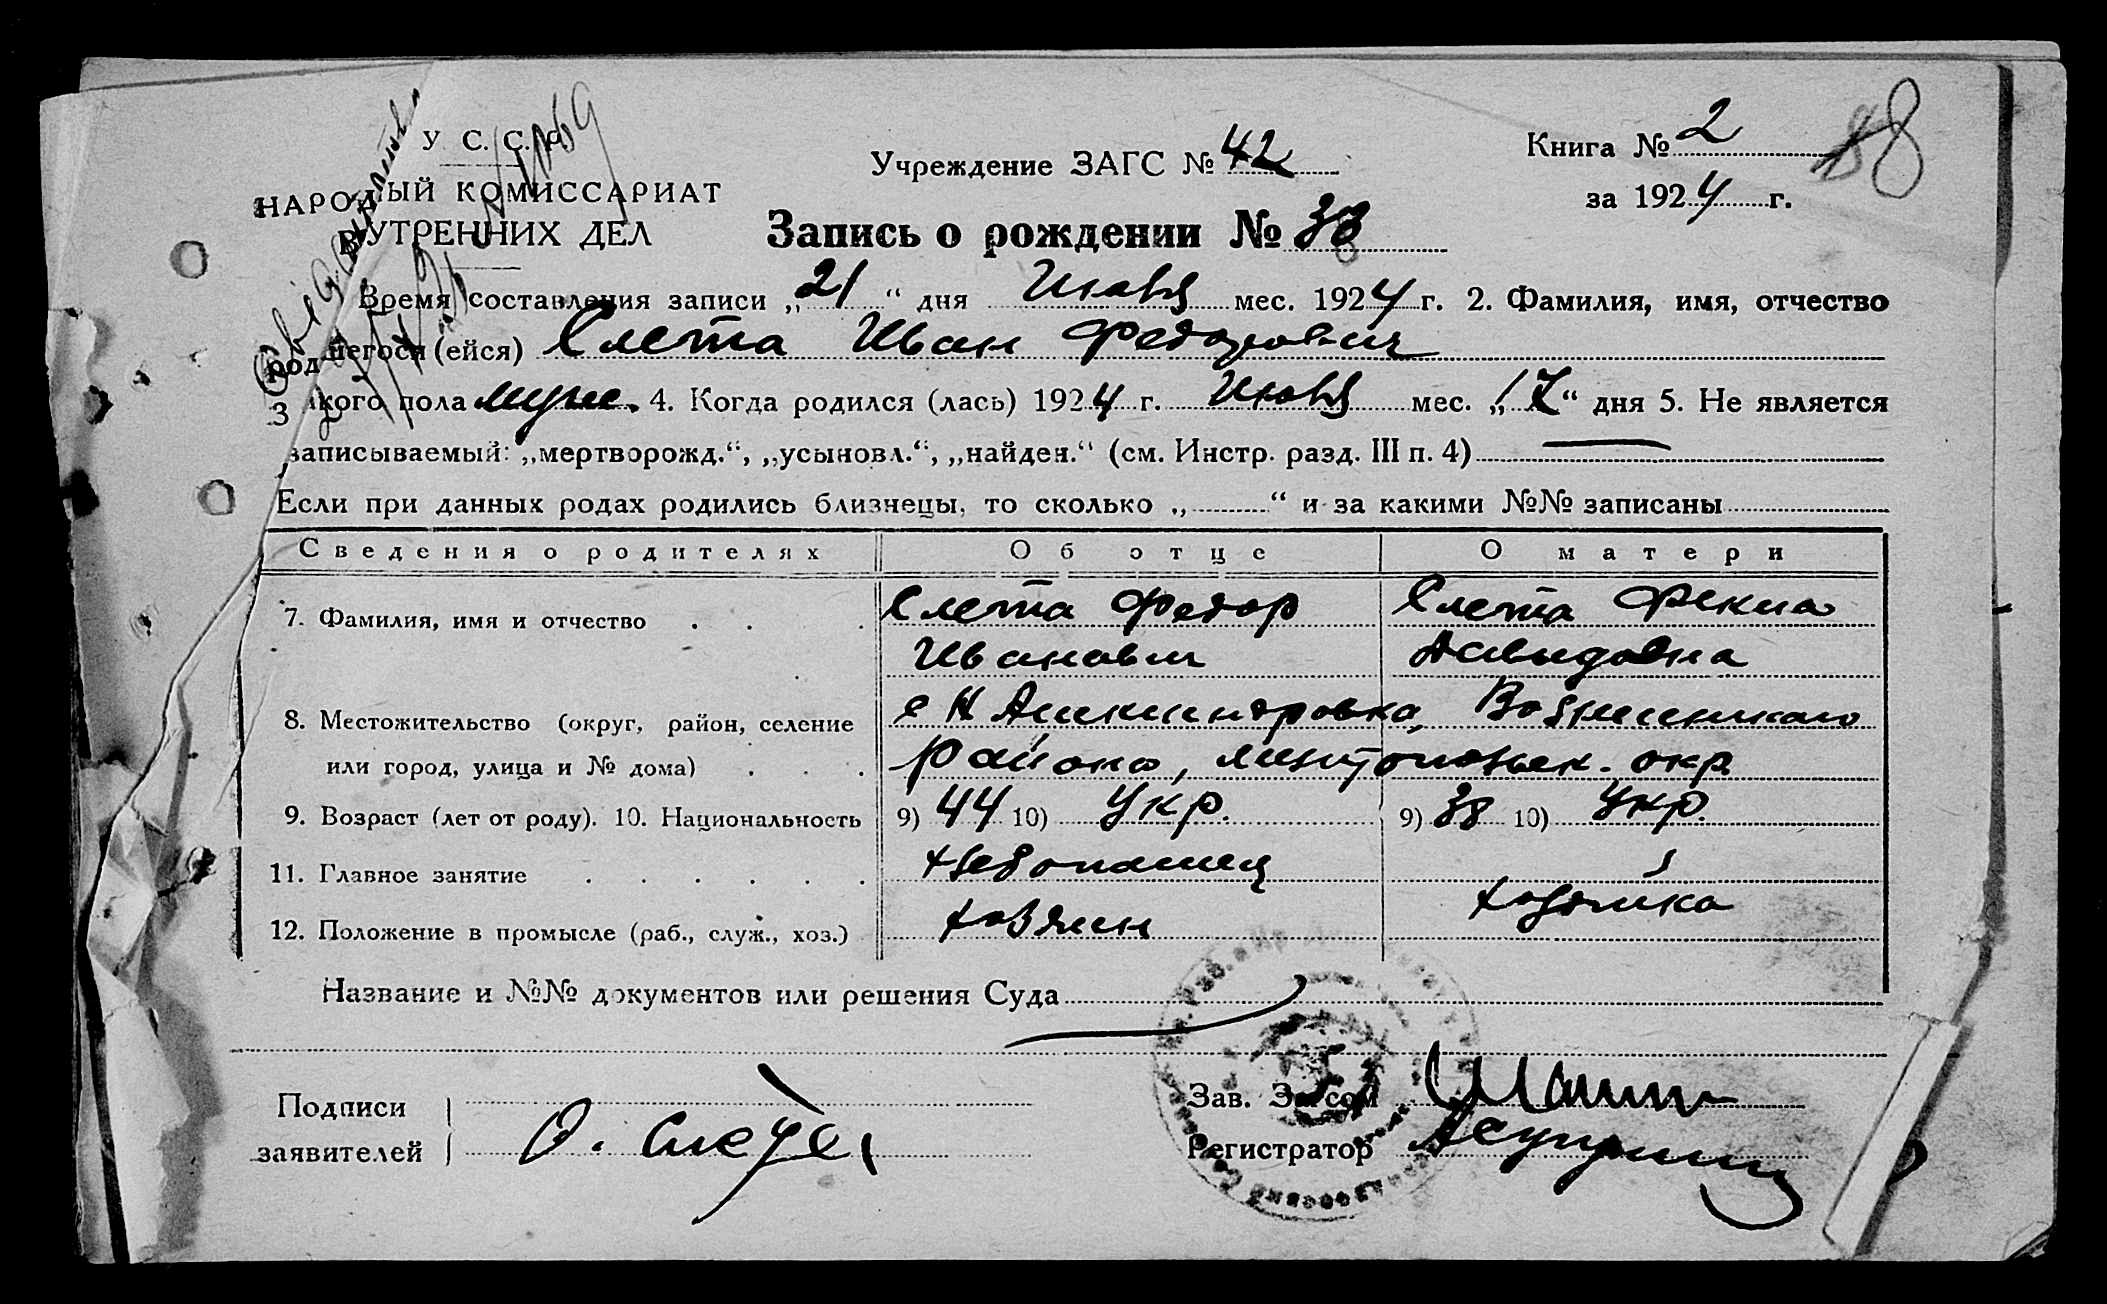 У. С. С. Р.
НАРОДНЫЙ КОМИССАРИАТ
ВНУТРЕННИХ ДЕЛ
Учреждение ЗАГС № 42
Книга № 2
за 1924 г.
88
Запись о рождении № 38
Время составления записи „21“ дня Июля мес. 1924 г. 2. Фамилия, имя, отчество
родившегося (ейся) Слета Иван Федорович
3 какого пола муж. 4. Когда родился (лась) 1924 г. Июля мес. „17“ дня 5. Не является
записываемый: „мертворожд.“, „усыновл.“, „найден.“ (см. Инстр. разд. III п. 4)
Если при данных родах родились близнецы, то сколько „ “ и за какими №№ записаны
Сведения о родителях Об отце О матери
7. Фамилия, имя и отчество Слета Федор Слета Фекла
Иванович Давыдовна
8. Местожительство (округ, район, селение с Н Александровка,
или город, улица и № дома) района, окр.
9. Возраст (лет от роду). 10. Национальность 9) 44 10) Укр. 9) 38 10) Укр.
11. Главное занятие Хлебопашец
12. Положение в промысле (раб., служ., хоз.) хозяин хозяйка
Название и №№ документов или решения Суда
Подписи
заявителей
Зав. Загсом
Регистратор